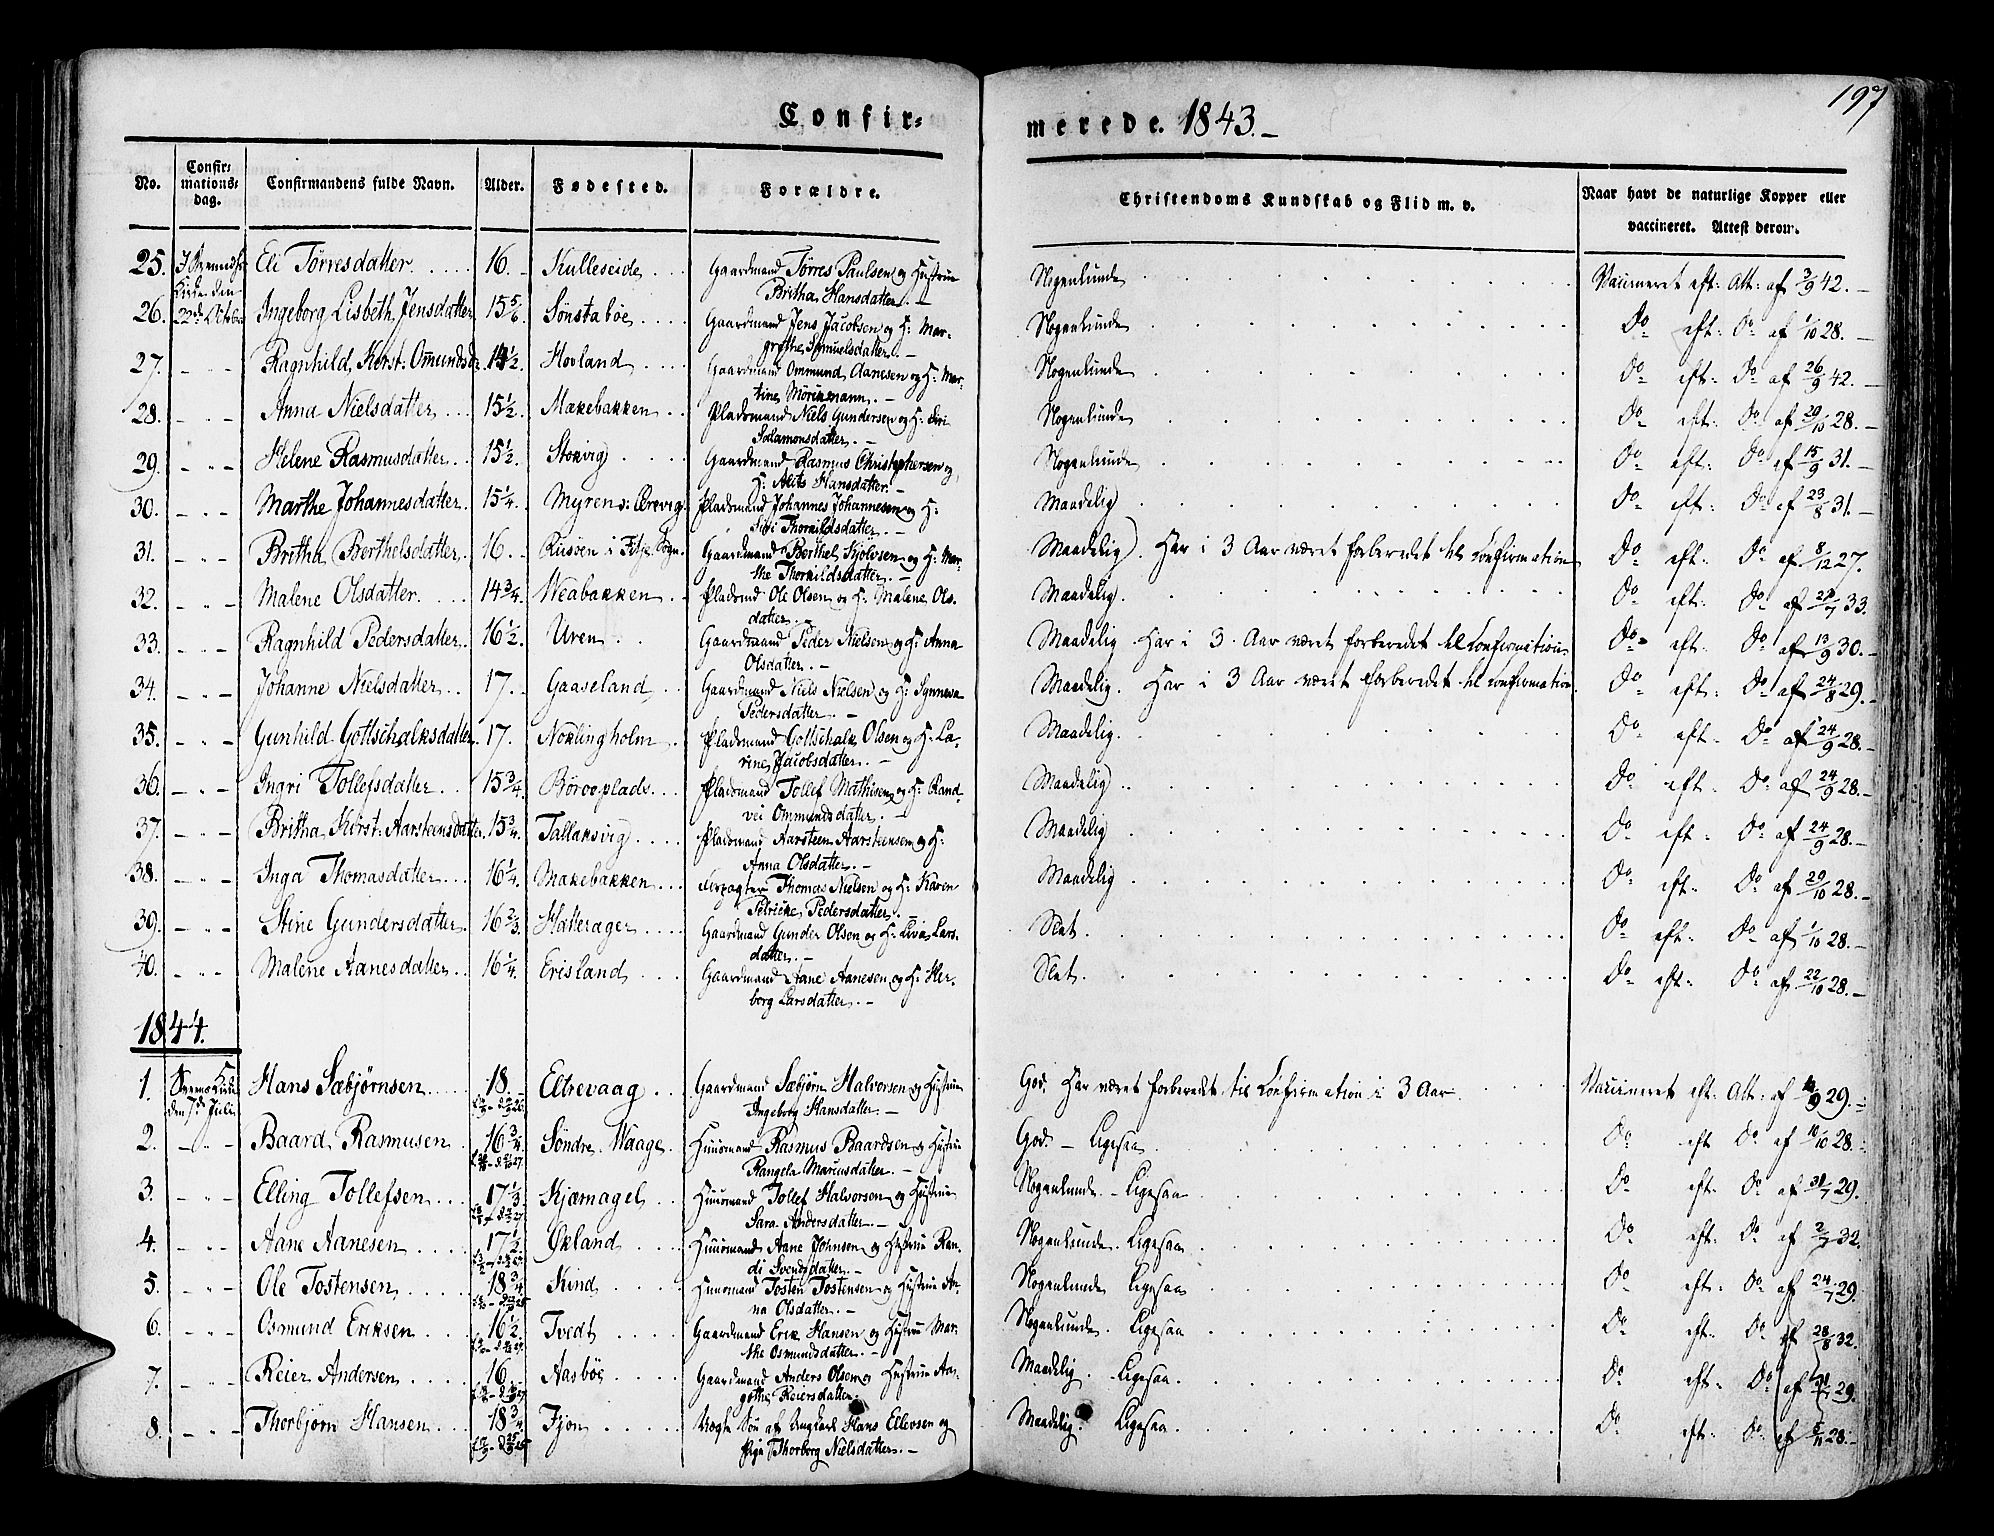 197
Confir= merede. 1843.-
No. Confir= mations= dag. Confirmandens fulde Navn. Alder. Fødested. Forældre. Christendoms Kundskab og Flid m. v. Naar havt de naturlige Kopper eller vaccineret. Attest derom.
25. Kirke den Eli Tørresdatter. 16.- Kulleseide Gaardmand Törres Paulsen og Hustrue Nogenlunde Vaccineret eft: Att: af 3/9 42.-
Britha Hansdatter.-
26. 22de Octobr Ingeborg Lisbeth Jensdatter 15 5/6 Sönstaböe Gaardmand Jens Jacobsen og H: Mar- Nogenlunde Do eft: Do af 1/10 28.-
grethe Samuelsdatter.-
27. - " - Ragnhild Kirst: Omundsdr. 14 1/2 Hovland Gaardmand Ommund Aanesen og H: Mar- Nogenlunde Do eft: Do af 26/9 42.-
tine Mörikmann.-
28. - " - Anna Nielsdatter 15 1/2. Makebakken Pladsmand Niels Gundersen og H: Siri Nogenlunde Do eft: Do af 29/10 28.-
Salamonsdatter.-
29. - " - Helene Rasmusdatter 15 1/2. Stokvig Gaardmand Rasmus Christophersen og Nogenlunde Do eft: Do af 15/9 31.-
H: Alits Hansdatter.-
30. - " - Marthe Johannesdatter 15 1/4. Myrens:Örevig. Pladsmand Johannes Johannesen og H: Maadelig Do eft: Do af 23/8 31.-
Siri Thorkildsdatter.-
31. - " - Britha Berthelsdatter. 16.- Risöen i Fitje Sogn. Gaardmand Berthel Kjölvsen og H: Mar- Maadelig. Har i 3 Aar været forberedet til Confirmation Do eft: Do af 8/12 27.
the Thorkildsdatter.-
32. - " - Malene Olsdatter. 14 3/4. Weabakken Pladsmd Ole Olsen og H: Malene Ols- Maadelig. Do eft: Do af 29/7 33.
datter.-
33. - " - Ragnhild Pedersdatter 16 1/2. Uren Gaardmand Peder Nielsen og H: Anna Maadelig. Har i 3 Aar været forberedet til Confirmation Do eft: Do af 13/9 30.-
Olsdatter.-
34. - " - Johanne Nielsdatter 17.- Gaaseland Gaardmand Niels Nielsen og H: Synneva Maadelig. Har i 3 Aar været forberedet til Confirmation. Do eft: Do af 24/8 29.-
Pedersdatter.-
35. - " - Gunhild Gottschalksdatter 17. Noklingholm Pladsmand Gottschalk Olsen og H: La- Maadelig. Do eft: Do af 24/9 28.-
rine Jacobsdatter.-
36. - " - Ingri Tollefsdatter 15 3/4. Böroeplads Pladsmand Tollef Mathisen og H: Rand- Maadelig Do eft: Do af 24/9 28.-
vei Ommundsdatter.-
37. - " - Britha Kirst: Aarsteensdatter. 15 3/4. Tallaksvig Pladsmand Aarsteen Aarsteensen og H: Maadelig Do eft: Do af 24/9 28.-
Anna Olsdatter.-
38. - " - Inga Thomasdatter 16 1/4. Makebakken Forpagter Thomas Nielsen og H: Karen Maadelig Do eft: Do af 29/10 28.-
Petricke Pedersdatter.-
39. - " - Stine Gundersdatter 16 2/3. Hatterager Gaardmand Gunder Olsen og H: Liva Lars- Slet. Do eft: Do af 1/10 28.-
datter.-
40. - " - Malene Aanesdatter 16 1/4. Erisland Gaardmand Aane Aanesen og H: Her- Slet. Do eft: Do af 22/10 28.-
borg Larsdatter.-
1844.
1. den 7de Juli. Hans Sæbjørnsen 18.- Eltrevaag Gaardmand Sæbjörn Halvorsen og Hustrue God. Har været forberedt til Confirmation i 3 Aar. Vaccineret eft: Att: af 29.-
Ingeborg Hansdatter.-
2. - " - Baard Rasmusen 16 3/4. Söndre Waage Huusmand Rasmus Baardsen og Hustrue God. - Ligesaa Do eft Do af 10/10 28.
Rangela Marcusdatter.-
3. - " - Elling Tollefsen 17 1/3. Kjærnagel Huusmand Tollef Halvorsen og Hustrue Nogenlunde - Ligesaa Do eft: Do af 31/7 29.
Sara Andersdatter.-
4. - " - Aane Aanesen 17 1/2. Økland Huusmand Aane Johnsen og Hustrue Ran- Nogenlunde. Ligesaa Do eft: Do af 2/7 32.
di Svendsdatter.-
5. - " - Ole Tostensen 18 3/4. Kind Huusmand Tosten Tostensen og Hustrue An- Nogenlunde Ligesaa Do eft: Do af 24/7 29.
na Olsdatter.-
6. - " - Osmund Eriksen 16 1/2. Tvedt Gaardmand Erik Hansen og Hustrue Mar- Nogenlunde. Ligesaa Do eft: Do af 28/8 32.
the Osmundsdatter.-
7. - " - Reier Andersen 16.- Aasböe Gaardmand Anders Olsen og Hustrue Aa- Maadelig. Ligesaa. Do eft: Do af 29.
gothe Reiersdatter.-
8. - " - Thorbjørn Hansen 18 3/4. Fjon Uægte Søn af Ungkarl Hans Ellevsen og Maadelig. Ligesaa Do eft: Do af 28.-
Pige Thorborg Nielsdatter.-